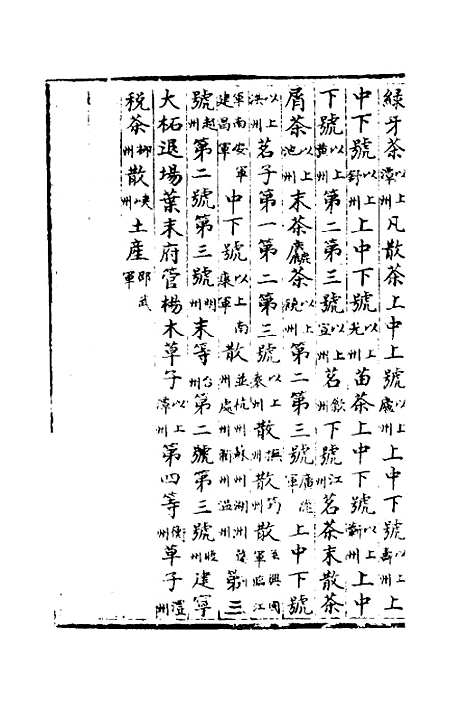 綠牙茶以上潭州凡散茶上中上號以上廬州上中下號以上壽州上
中下號以上舒州上中下號以上光州苗茶上中下號以上蘄州上中
下號以上黄州第二第三號以上宣州茗歙州下號江州茗茶末散茶
屑茶以上池州末茶麄茶以上饒州第二第三號廣德軍上中下號
以上洪州茗子第一第二第三號以上袁州散撫州散筠州散興國軍臨江
軍南安軍建昌軍中下號以上南康軍散並杭州蘇州湖州州處州衢州温州第三
號越州第二號第三號明州末等台州第二號第三號睦州建寧
大柘退場葉末府管楊木草子以上潭州第四等衡州草子澧州
税茶郴州散峽州土産邵武軍